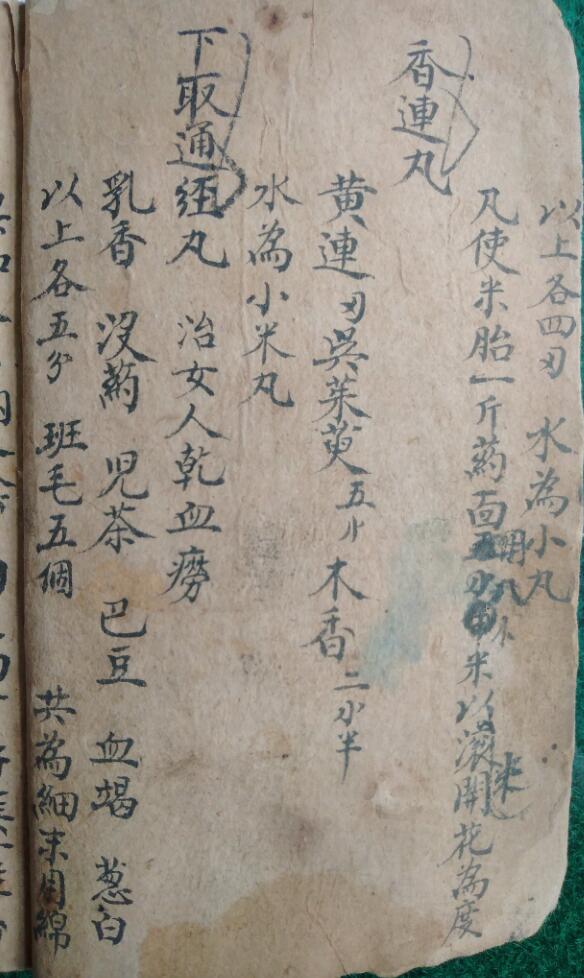 以上各四刃 水為小丸
凡使米胎一斤薬面用八米以滾開花為度
香連丸
黄連刃吳茱萸五小木香二小半
水為小米丸
下取通經丸 治女人乾血癆
乳香 沒薬 児茶 巴豆 血竭 葱白
以上各五分 班毛五個 共為細末用綿